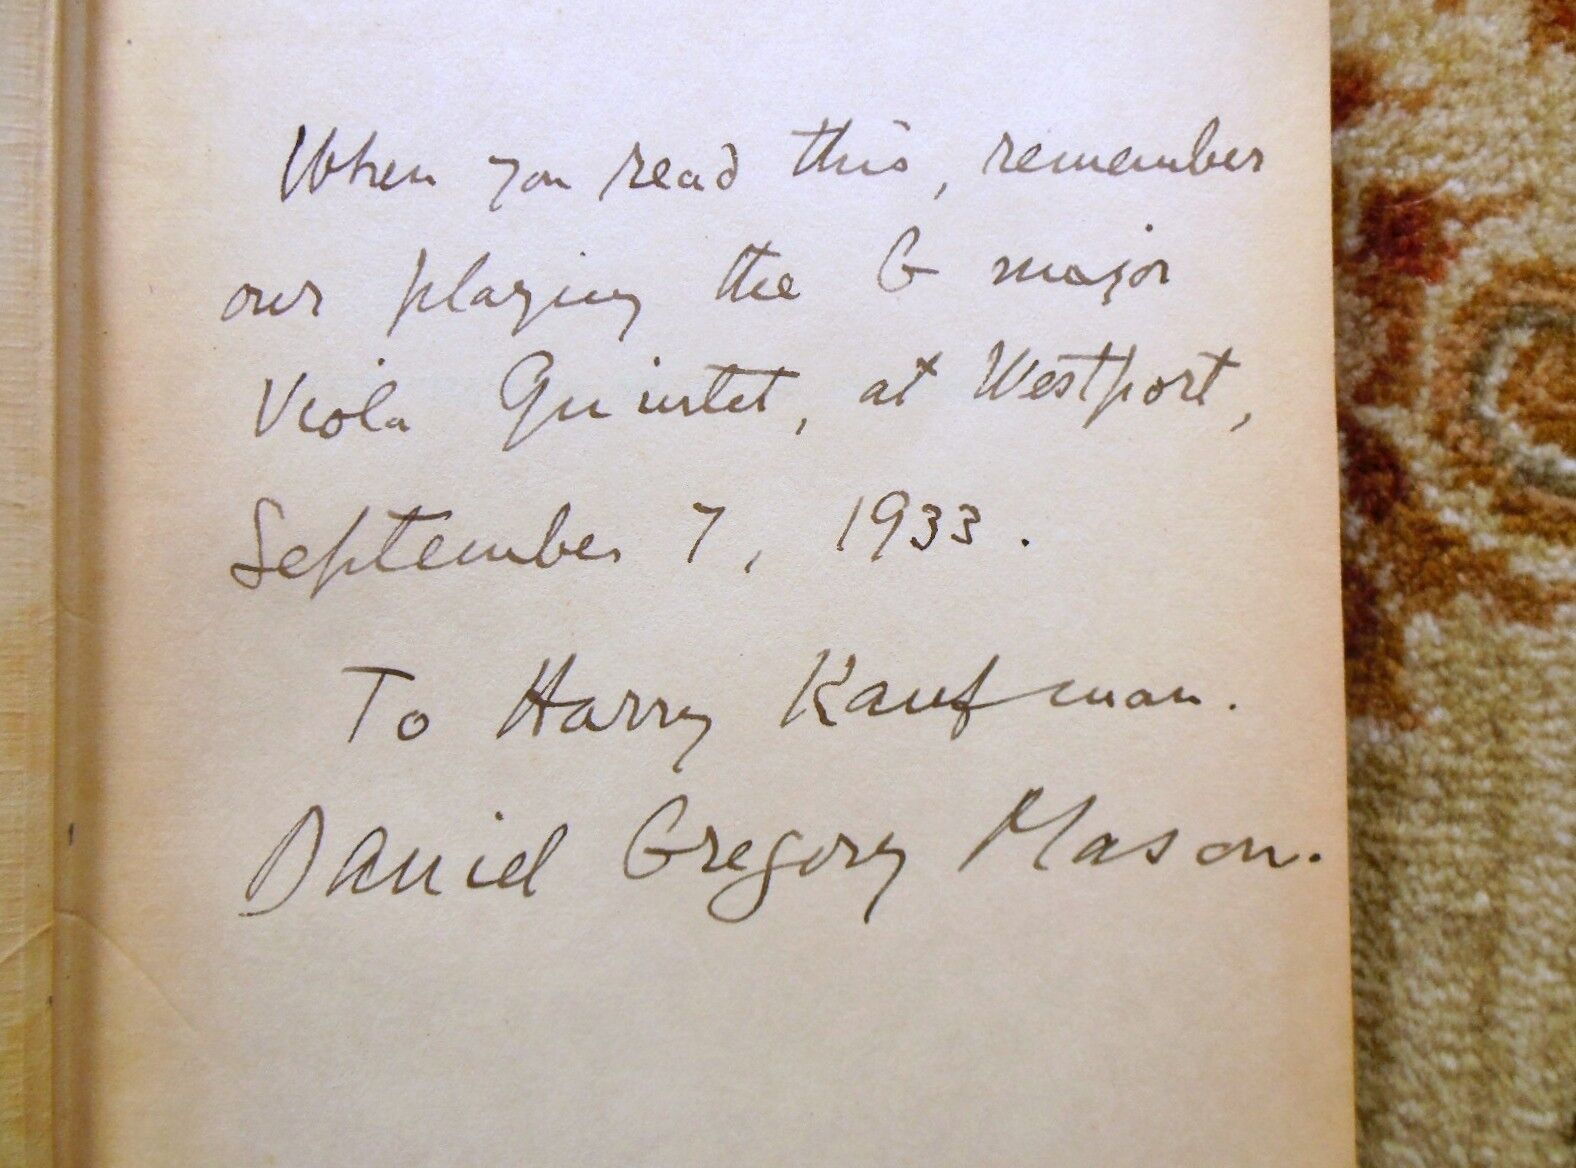 When you read this, remember
our playing the G major
Viola Quintet, at Westport,
September 7, 1933.
To Harry Kaufman.
Daniel Gregory Mason.